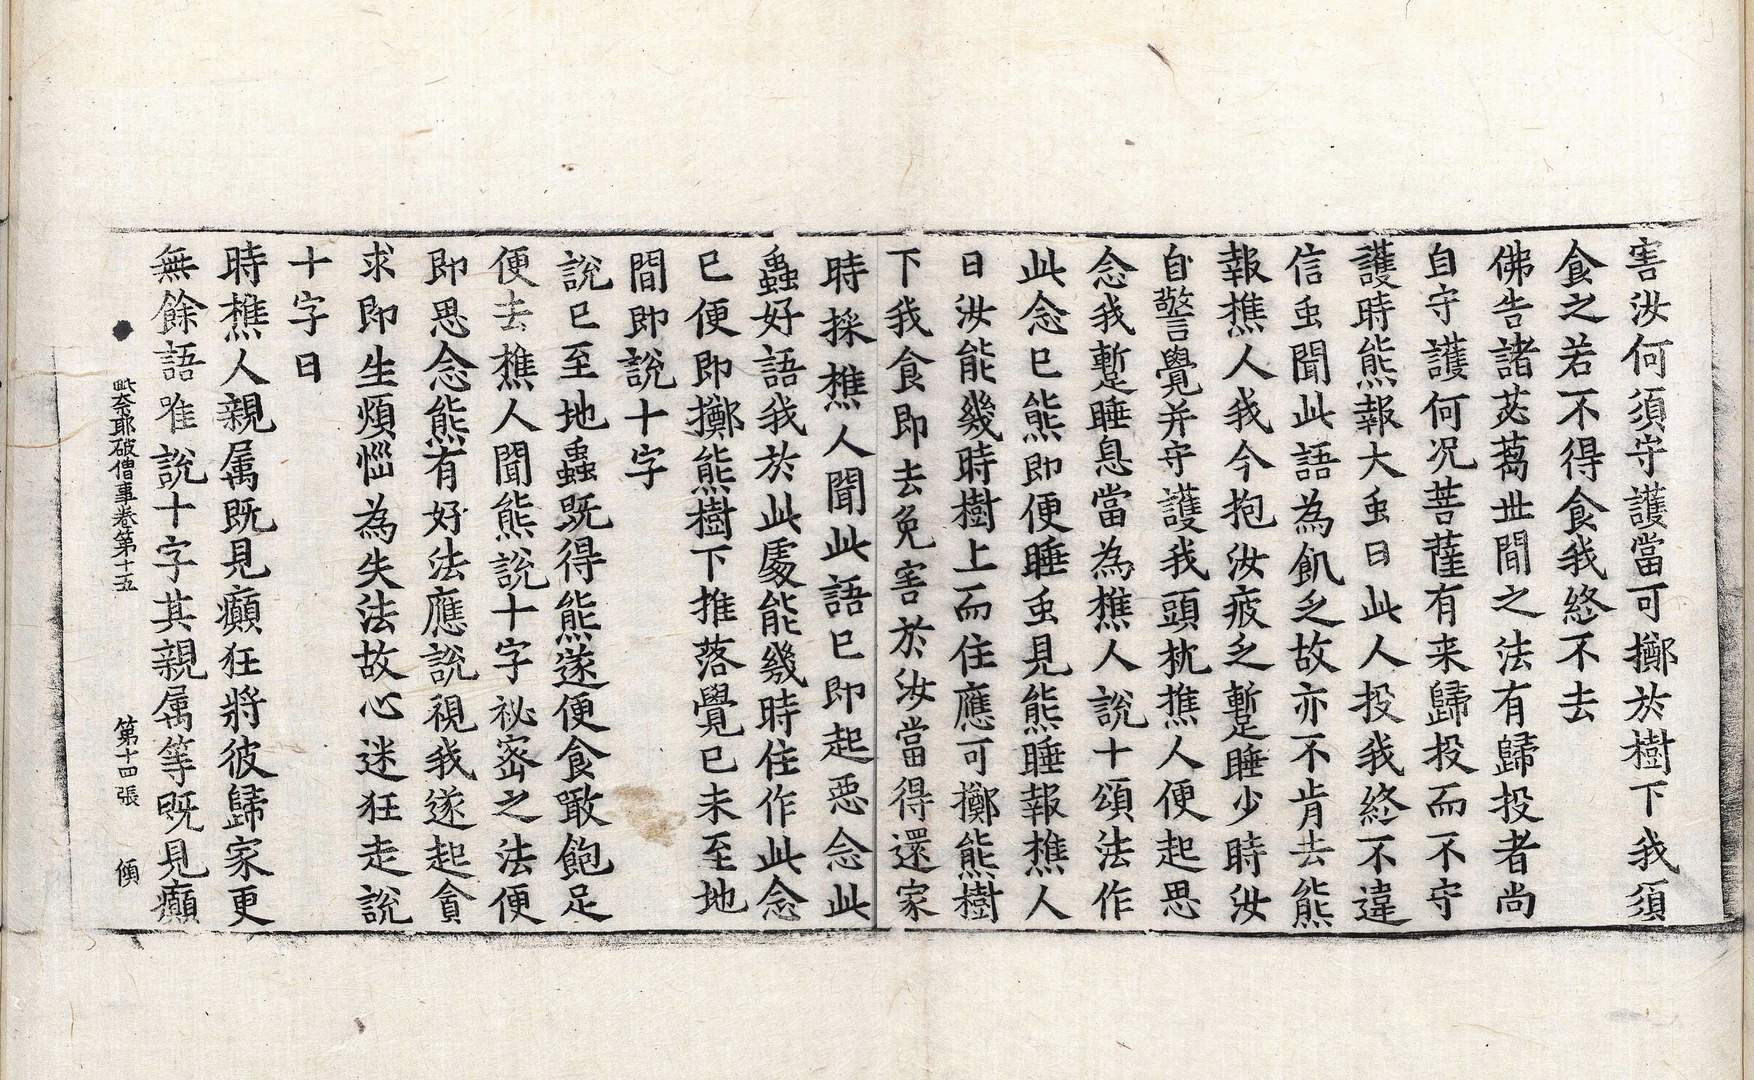 害汝何須守護當可擲於樹下我須
食之若不得食我終不去
佛告諸苾蒭世閒之法有歸投者尚
自守護何况菩薩有来歸投而不守
護時熊報大䖝曰此人投我終不違
信䖝聞此語為飢乏故亦不肯去熊
報樵人我今抱汝疲乏蹔睡少時汝
自警覺并守護我頭枕樵人便起思
念我蹔睡息當為樵人說十頌法作
此念已熊即便睡䖝見熊睡報樵人
曰汝能幾時樹上而住應可擲熊樹
下我食即去免害於汝當得還家
時採樵人聞此語已即起惡念此
蟲好語我於此處能幾時住作此念
已便即擲熊樹下推落覺已未至地
間即說十字
說已至地蟲既得熊遂便食噉飽足
便去樵人聞熊說十字祕密之法便
即思念熊有好法應說視我遂起貪
求即生煩惱為失法故心迷狂走說
十字曰
時樵人親属既見癲狂將彼歸家更
無餘語唯說十字其親属等既見癲
毗奈耶破僧事卷第十五 第十四張 傾